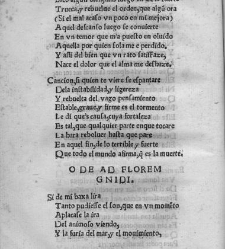 Trueca, y rebuelue el orden, que algũ ora
(Si el mal acaso vn poco en mi mejora)
Aquel descanso luego se conuierte
En vn temor que m'a puesto en oluido
Aquella por quien sola me e perdido,
Y assi del bien que vn rato satisfaze,
Nace el dolor que el alma me deshaze.
Cancion, si quien te viere se espantare
Dela instabilidad, y ligereza
Y rebuelta del vago pensamiento
Estable, graue, y firme es el tormento
Le di que's causa, cuya fortaleza
Es tal, que qualquier parte en que tocare
La hara reboluer hasta que pare
En aquel fin, de lo terrible y fuerte
Que todo el mundo afirma, q̃ es la muerte.
ODE AD FLOREM
GNIDI.
Si de mi baxa lira
Tanto pudiesse el son, que en vn momẽto
Aplacasse la ira
Del animoso viendo,
Y la furia del mar, y el mouimiento,